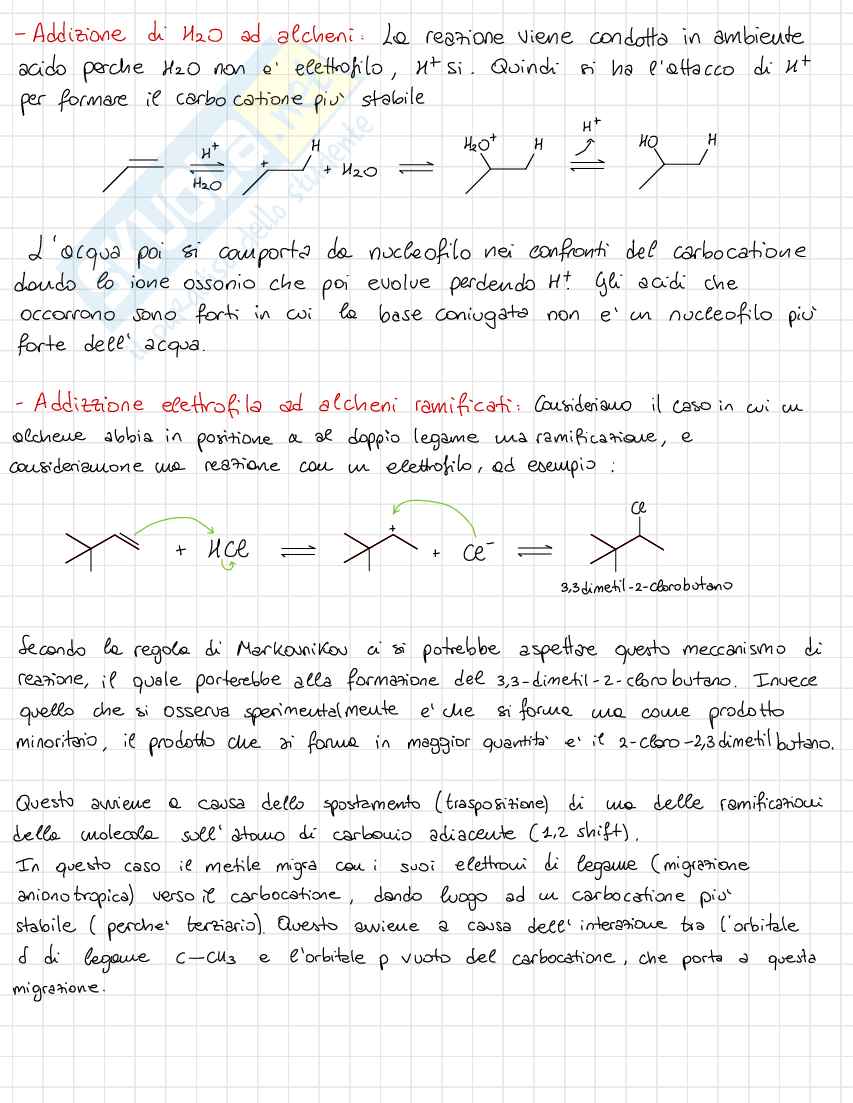 - Addizione di H2O ad alcheni: La reazione viene condotta in ambiente
acido perche H2O non e' elettrofilo, H+ si. Quindi si ha l'attacco di H+
per formare il carbocatione piu' stabile
H+
H2O
+
H
+ H2O
H2O+
H
H+
HO
H
L'acqua poi si comporta da nucleofilo nei confronti del carbocatione
dando lo ione ossonio che poi evolve perdendo H+. Gli acidi che
occorrono sono forti in cui la base coniugata non e' un nucleofilo piu'
forte dell'acqua.
- Addizzione elettrofila ad alcheni ramificati: Consideriamo il caso in cui un
alchene abbia in posizione α al doppio legame una ramificazione, e
consideriamone una reazione con un elettrofilo, ad esempio:
+ HCl
+
+ Cl-
Cl
3,3 dimetil-2-clorobutano
Secondo la regola di Markovnikov ci si potrebbe aspettare questo meccanismo di
reazione, il quale porterebbe alla formazione del 3,3-dimetil-2-clorobutano. Invece
quello che si osserva sperimentalmente e' che si forma ma come prodotto
minoritario, il prodotto che si forma in maggior quantita' e' il 2-cloro-2,3 dimetilbutano.
Questo avviene a causa dello spostamento (trasposizione) di una delle ramificazioni
della molecola sull'atomo di carbonio adiacente (1,2 shift).
In questo caso il metile migra con i suoi elettroni di legame (migrazione
anionotropica) verso il carbocatione, dando luogo ad un carbocatione piu'
stabile (perche' terziario). Questo avviene a causa dell'interazione tra l'orbitale
σ di legame C-CH3 e l'orbitale p vuoto del carbocatione, che porta a questa
migrazione.
SKUOLA.net
il paradiso dello studente